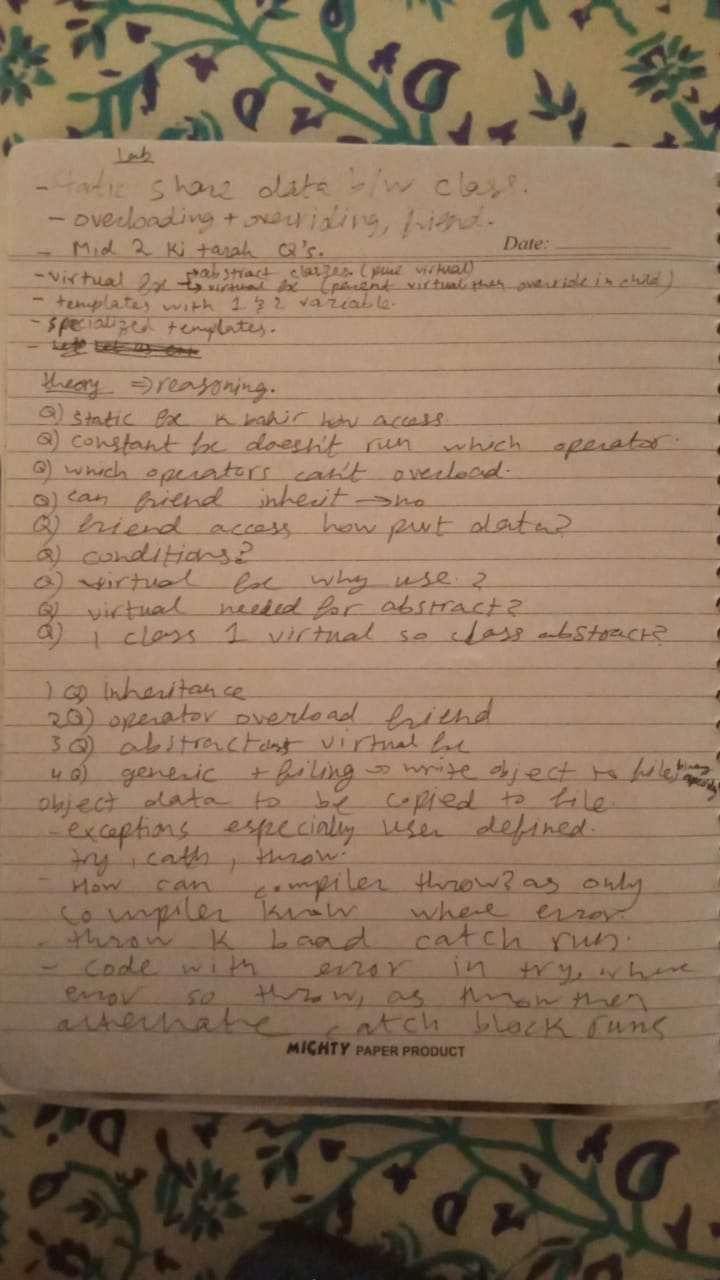 Lab
- static share data b/w class.
- overloading + overriding, friend.
- Mid 2 ki tarah Q's.
Date:
- virtual fx → abstract classes (pure virtual)
→ virtual fx (parent virtual then override in child)
- templates with 1 & 2 variable.
- specialized templates.
-
theory ⇒ reasoning.
Q) static fx k bahir how access.
Q) constant fx doesn't run which operator.
Q) which operators can't overload.
Q) can friend inherit → no
Q) friend access how pvt data?
Q) conditions?
Q) virtual fx why use?
Q) virtual needed for abstract?
Q) 1 class 1 virtual so class abstract?
1Q) Inheritance
2Q) operator overload friend
3Q) abstract virtual fx
4Q) generic + filing → write object to file,
object data to be copied to file.
- exceptions especially user defined.
try, cath, throw.
- How can compiler throw? as only
compiler know where error.
- throw k baad catch run.
- code with error in try, where
error so throw, as throw then
alternate catch block runs
MIGHTY PAPER PRODUCT